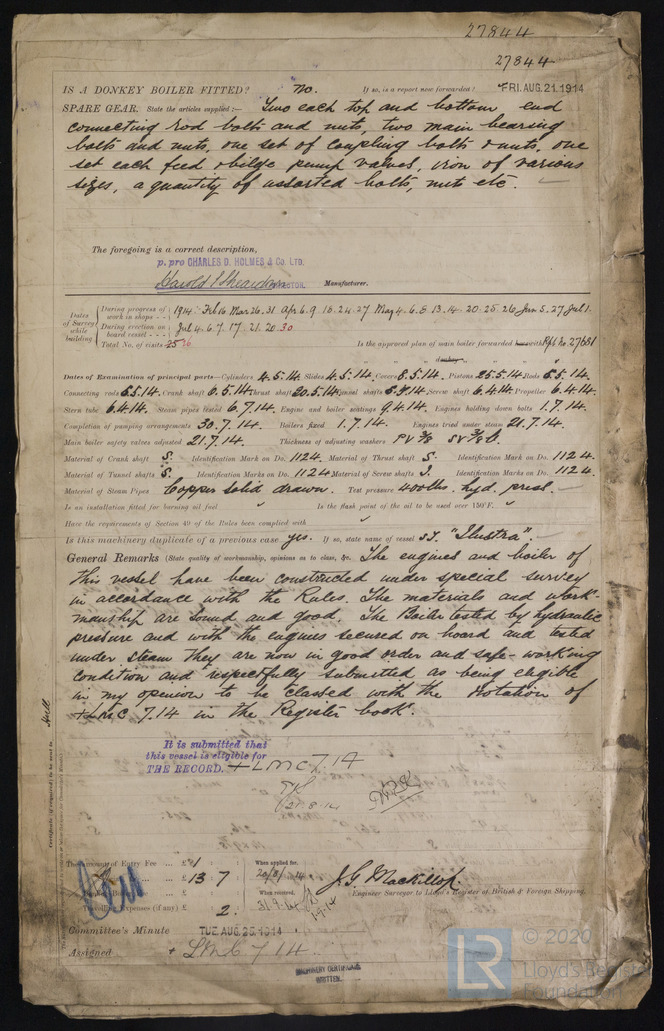 27844
27844
IS A DONKEY BOILER FITTED? no. If so, is a report now forwarded? FRI. AUG. 21. 1914
SPARE GEAR. State the articles supplied:— Two each top and bottom end
connecting rod bolts and nuts, two main bearing
bolts and nuts, one set of coupling bolts & nuts, one
set each feed & bilge pump valves, iron of various
sizes, a quantity of assorted bolts, nuts etc.
The foregoing is a correct description,
p. pro CHARLES D. HOLMES & Co. LTD.
Harold DIRECTOR. Manufacturer.
Dates of Survey while building
During progress of work in shops - - 1914. Feb 16 Mar 26. 31 Apr 6. 9. 18. 24. 27 May 4. 6. 8 13. 14. 20. 25. 26. Jun 5. 27 Jul 1.
During erection on board vessel - - - Jul 4. 6. 7. 17. 21. 20. 30
Total No. of visits 26 Is the approved plan of main boiler forwarded herewith Rpt No. 27681
" " " donkey " " "
Dates of Examination of principal parts—Cylinders 4.5.14. Slides 4.5.14. Covers 8.5.14. Pistons 25.5.14. Rods 5.5.14.
Connecting rods 5.5.14. Crank shaft 6.5.14. Thrust shaft 20.5.14. Tunnel shafts Screw shaft 6.4.14. Propeller 6.4.14.
Stern tube 6.4.14. Steam pipes tested 6.7.14. Engine and boiler seatings 9.4.14. Engines holding down bolts 1.7.14.
Completion of pumping arrangements 30.7.14. Boilers fixed 1.7.14. Engines tried under steam 21.7.14.
Main boiler safety valves adjusted 21.7.14. Thickness of adjusting washers PV 3/8 SV 3/8
Material of Crank shaft S. Identification Mark on Do. 1124. Material of Thrust shaft S. Identification Mark on Do. 1124.
Material of Tunnel shafts S. Identification Marks on Do. 1124 Material of Screw shafts Identification Marks on Do. 1124.
Material of Steam Pipes Copper solid drawn. Test pressure 400 lbs. hyd. press.
Is an installation fitted for burning oil fuel " Is the flash point of the oil to be used over 150°F. "
Have the requirements of Section 49 of the Rules been complied with "
Is this machinery duplicate of a previous case yes. If so, state name of vessel "Ilustra".
General Remarks (State quality of workmanship, opinions as to class, &c. The engines and boiler of
this vessel have been constructed under special survey
in accordance with the Rules. The materials and work-
manship are sound and good. The Boiler tested by hydraulic
pressure and with the engines secured on board and tested
under steam they are now in good order and safe-working
condition and respectfully submitted as being eligible
in my openion to be classed with the notation of
+LMC 7.14 in the Register book.
It is submitted that
this vessel is eligible for
THE RECORD. + LMC 7.14
21.8.14
Hull
Certificate (if required) to be sent to
The amount of Entry Fee ... £ 1 : : When applied for,
£ 13 : 7 20/8/14
£ : : When received,
Travelling Expenses (if any) £ 2. 31.9.14
J. G. Mackillop
Engineer Surveyor to Lloyd's Register of British & Foreign Shipping.
Committee's Minute TUE. AUG. 25. 1914
Assigned + LMC 7.14
MACHINERY CERTIFICATE
WRITTEN.
LR
© 2020
Lloyd's Register
Foundation